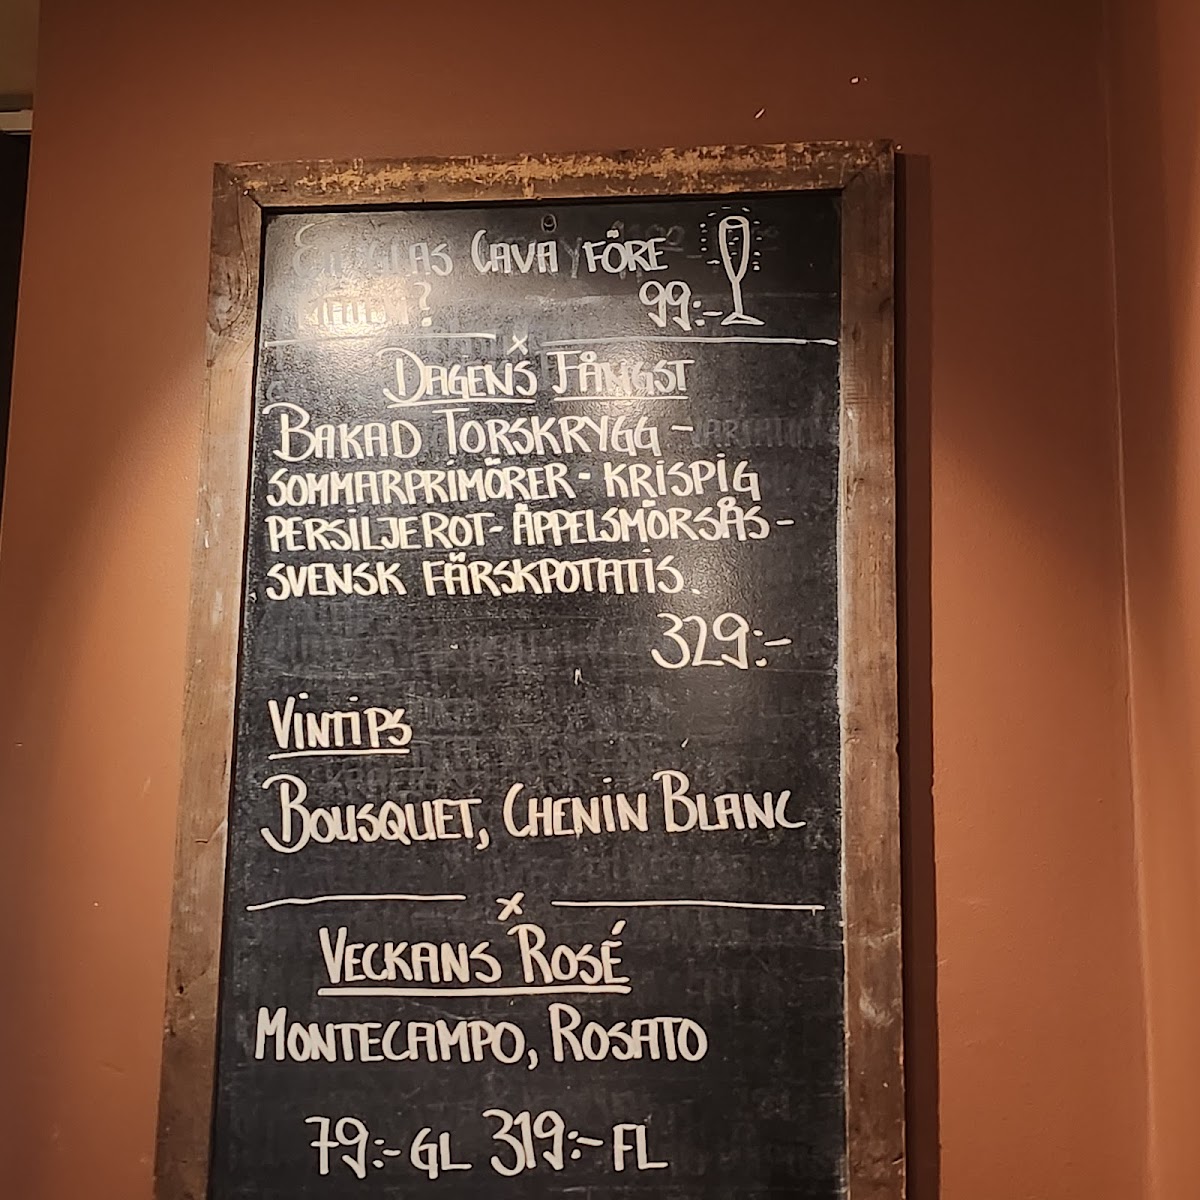 Ett GLAS CAVA FÖRE
MATEN? 99:-
DAGENS FÅNGST
BAKAD TORSKRYGG -
SOMMARPRIMÖRER - KRISPIG
PERSILJEROT - ÄPPELSMÖRSÅS -
SVENSK FÄRSKPOTATIS.
329:-
VINTIPS
BOUSQUET, CHENIN BLANC
x
VECKANS ROSÉ
MONTECAMPO, ROSATO
79:- GL 319:- FL